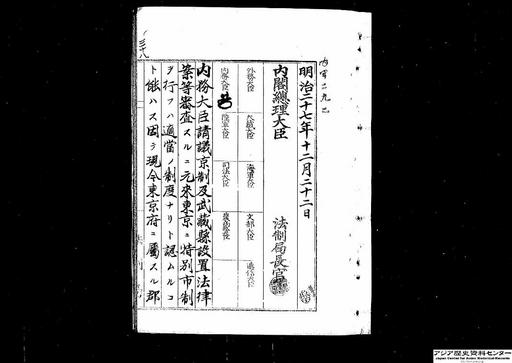 内百二九乙
明治二十七年十二月二十二日
内閣總理大臣
法制局長官
外務大臣
大蔵大臣
海軍大臣
文部大臣
遞信大臣
内務大臣
陸軍大臣
司法大臣
農商務大臣
内務大臣請議京制及武蔵縣設置法律
案等審査スルニ元來東京ニ特別市制
ヲ行フハ適當ノ制度ナリト認ムルコ
ト能ハス因テ現今東京府ニ屬スル郡
アジア歴史資料センター
Japan Center for Asian Historical Records